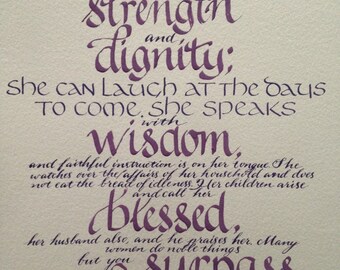 strength
and
dignity;
she can laugh at the days
to come. she speaks
with
wisdom,
and faithful instruction is on her tongue. She
watches over the affairs of her household and does
not eat the bread of idleness. Her children arise
and call her
blessed,
her husband also, and he praises her. Many
women do noble things
but you
surpass